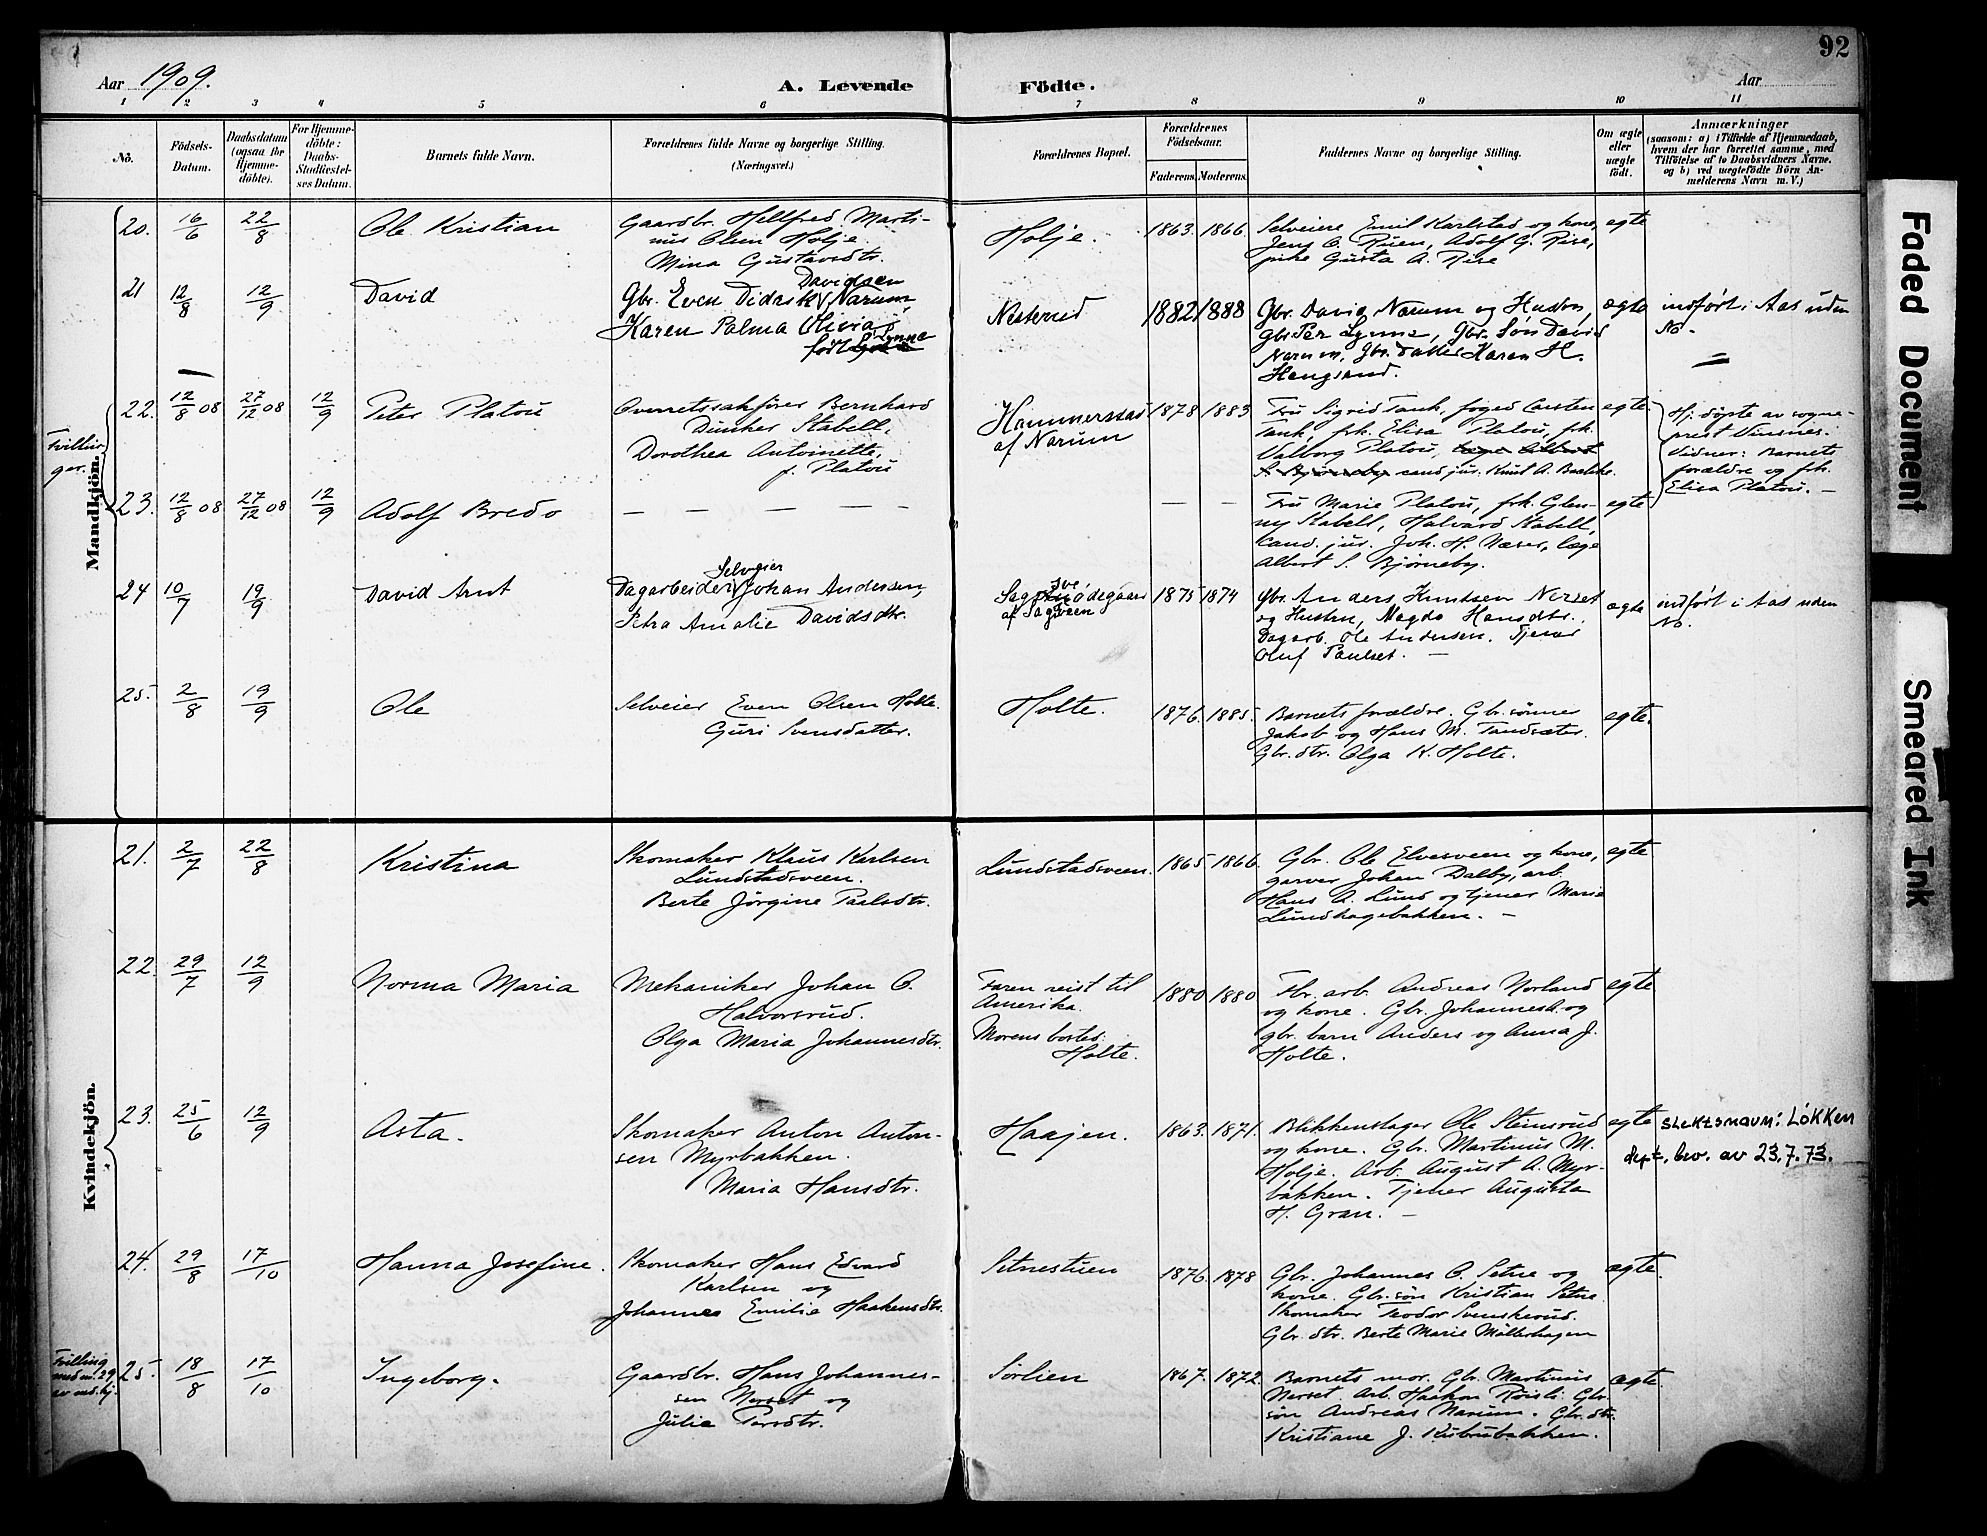 92
Aar 1909.
A. Levende
Födte.
Aar
1 2 3 4 5 6 7 8 9 10 11
No.
Födsels-Datum.
Daabsdatum (ogsaa for Hjemme-döbte).
For Hjemme-döbte: Daabs-Stadfæstel-ses Datum.
Barnets fulde Navn.
Forældrenes fulde Navne og borgerlige Stilling.
(Næringsvei.)
Forældrenes Bopæl.
Forældrenes Födselsaar.
Faderens. Moderens.
Faddernes Navne og borgerlige Stilling.
Om ægte eller uægte födt.
Anmærkninger
(saasom: a) i Tilfælde af Hjemmedaab,
hvem der har forrettet samme, med
Tilföielse af to Daabsvidners Navne.
og b) ved uægtefödte Börn An-
melderens Navn m. V.)
Mandkjön.
20. 16/6 22/8 Ole Kristian
Gaardbr. Hellfred Marti-
nius Olsen Holje.
Mina Gustavsdtr.
Holje. 1863. 1866.
Selveiere Emil Karlstad og kone,
Jens O. Ruen, Adolf G. Rise,
pike Gusta A. Rise
egte
21 12/8 12/9 David
Davidsen
Gbr. Even Didrik Narum,
Karen Palma Olivia
født Lynne
1882 1888
Gbr. David Narum og Hustru,
Gbr. Per Lynne, Gbr. Søn David
Narum, Gbr. Datter Karen H.
Hengsrud.
ægte
indført i Aas uden
No.
Tvillin-
ger.
22. 12/8 08 27/12 08 12/9 Peter Platou
Overretssakfører Bernhard
Dunker Stabell,
Dorothea Antoinette,
f. Platou
Hammerstad
af Narum
1878 1883
Fru Sigrid Tank, foged Carsten
Tank, frk. Elisa Platou, frk.
Valborg Platou, læge Albert
S. Bjørneby cand. jur. Knut A. Baalske.
egte.
Hj. døpte av sogne-
prest Vinsnes.
Vidner: Barnets
forældre og frk.
Elisa Platou. —
23. 12/8 08 27/12 08 12/9 Adolf Bredo
— — — — —
— —
Fru Marie Platou, frk. Glen-
ny Stabell, Halvard Stabell,
Cand. jur. Joh. H. Næser, læge
Albert S. Bjørneby.
egte
24 10/7 19/9 David Arnt
Selveier
Dagarbeider Johan Andersen,
Petra Amalie Davidsdtr.
af Sagveen
1875 1874
Gbr. Anders Knutsen Nerset
og Hustru, Magda Hansdtr.,
Dagarb. Ole Andersen. Tjener
Oluf Paulset. —
ægte
indført i Aas uden
No.
25. 2/8 19/9 Ole
Selveier Even Olsen Holte.
Guri Svensdatter.
Holte. 1876. 1885.
Barnets forældre. Gbr. sønner
Jakob og Hans M. Tandsæter.
Gbr. dtr. Olga K. Holte.
egte.
Kvindekjön.
21. 2/7 22/8 Kristina
Skomaker Klaus Karlsen
Lundstadsveen.
Berte Jørgine Paalsdtr.
Lundstadsveen. 1865 1866.
Gbr. Ole Elvesveen og kone,
garver Johan Dalby, arb.
Hans A. Lund og tjener Marie
Lundhagebakken. —
egte
22. 29/7 12/9 Norma Maria
Mekaniker Johan O.
Halvorsrud.
Olga Maria Johannesdtr.
Faren reist til
Amerika.
Morens bosted:
Holte.
1880 1880
Fbr. arb. Andreas Norland
og kone. Gbr. Johannes A. og
gbr. barn Anders og Anna J.
Holte.
egte
23. 25/6 12/9 Asta.
Skomaker Anton Anton-
sen Myrbakken.
Maria Hansdtr.
Haajen. 1863. 1871.
Blikkenslager Ole Steinsrud
og kone. Gbr. Martinus M.
Holje. Arb. August A. Myr-
bakken. Tjener Augusta
H. Gran. —
egte
slektsnavn: LÖKKEN
dept. bev. av 23.7.73.
24. 29/8 17/10 Hanna Josefine.
Skomaker Hans Edvard
Karlsen og
Johannea Emilie Haakensdtr.
Setnestuen 1876. 1878
Gbr. Johannes O. Setne og
kone. Gbr. søn Kristian Setne
Skomaker Teodor Svenskerud.
Gbr. dtr. Berte Marie Møllerhagen
ægte.
Tvilling
med nr. 29
av md.kj.
25. 18/8 17/10 Ingeborg.
Gaardbr. Hans Johannes-
sen Nerset og
Julie Persdtr.
Sørlien 1867. 1872.
Barnets mor. Gbr. Martinus
Nerset. Arb. Haakon Røisli. Gbr.
søn Andreas Narum. Gbr. dtr.
Kristiane J. Kubrubakken.
ægte.
Faded Document
Smeared Ink